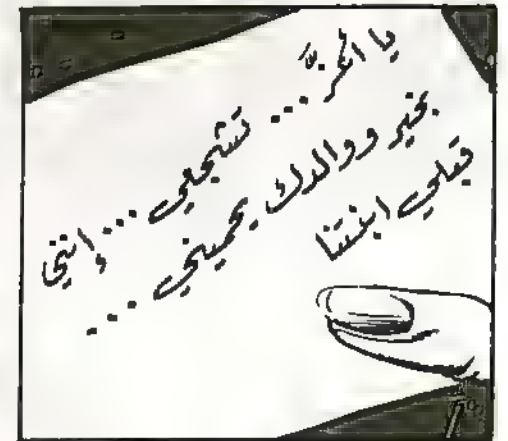 يا أعزَّ... تشجعي... إنني
بخير ووالدك يحميني...
قبلي ابنتنا